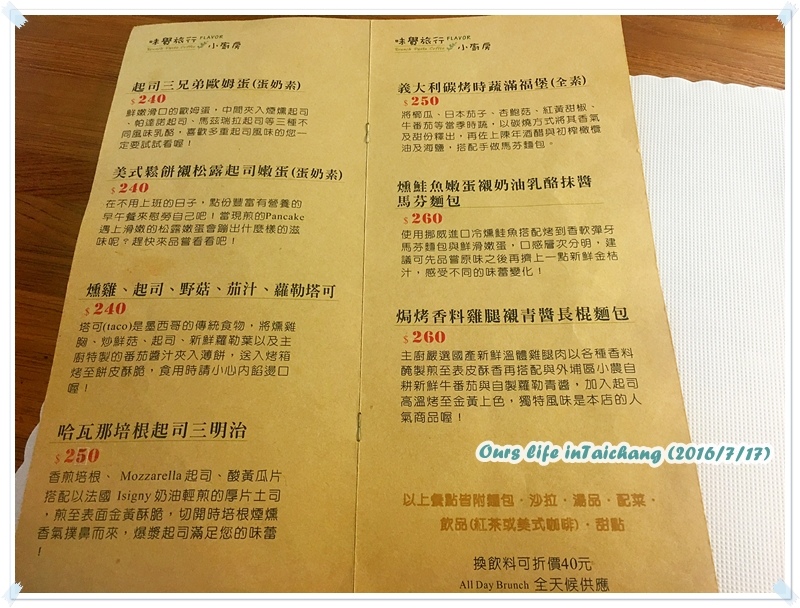 味覺旅行 FLAVOR
小廚房
起司三兄弟歐姆蛋(蛋奶素)
$240
鮮嫩滑口的歐姆蛋，中間夾入煙燻起司
、帕達諾起司、馬茲瑞拉起司等三種不
同風味乳酪，喜歡多重起司風味的您一
定要試試看喔！
美式鬆餅襯松露起司嫩蛋(蛋奶素)
$240
在不用上班的日子，點份豐富有營養的
早午餐來慰勞自己吧！當現煎的Pancake
遇上滑嫩的松露嫩蛋會蹦出什麼樣的滋
味呢？趕快來品嘗看看吧！
燻雞、起司、野菇、茄汁、蘿勒塔可
$240
塔可(taco)是墨西哥的傳統食物，將燻雞
胸、炒鮮菇、起司、新鮮蘿勒葉以及主
廚特製的番茄醬汁夾入薄餅，送入烤箱
烤至餅皮酥脆，食用時請小心內餡燙口
喔！
哈瓦那培根起司三明治
$250
香煎培根、Mozzarella 起司、酸黃瓜片
搭配以法國 Isigny 奶油輕煎的厚片土司
，煎至表面金黃酥脆，切開時培根煙燻
香氣撲鼻而來，爆漿起司滿足您的味蕾
！
味覺旅行 FLAVOR
小廚房
義大利碳烤時蔬滿福堡(全素)
$250
將櫛瓜、日本茄子、杏鮑菇、紅黃甜椒、
牛番茄等當季時蔬，以碳燒方式將其香氣
及甜份釋出，再佐上陳年酒醋與初榨橄欖
油及海鹽，搭配手做馬芬麵包。
燻鮭魚嫩蛋襯奶油乳酪抹醬
馬芬麵包
$260
使用挪威進口冷燻鮭魚搭配烤到香軟彈牙
馬芬麵包與鮮滑嫩蛋，口感層次分明，建
議可先品嘗原味之後再擠上一點新鮮金桔
汁，感受不同的味蕾變化！
焗烤香料雞腿襯青醬長棍麵包
$260
主廚嚴選國產新鮮溫體雞腿肉以各種香料
醃製煎至表皮酥香再搭配與外埔區小農自
耕新鮮牛番茄與自製蘿勒青醬，加入起司
高溫烤至金黃上色，獨特風味是本店的人
氣商品喔！
Ours life inTaichang (2016/7/17)
以上餐點皆附麵包．沙拉．湯品．配菜．
飲品(紅茶或美式咖啡)．甜點
換飲料可折價40元
All Day Brunch 全天候供應